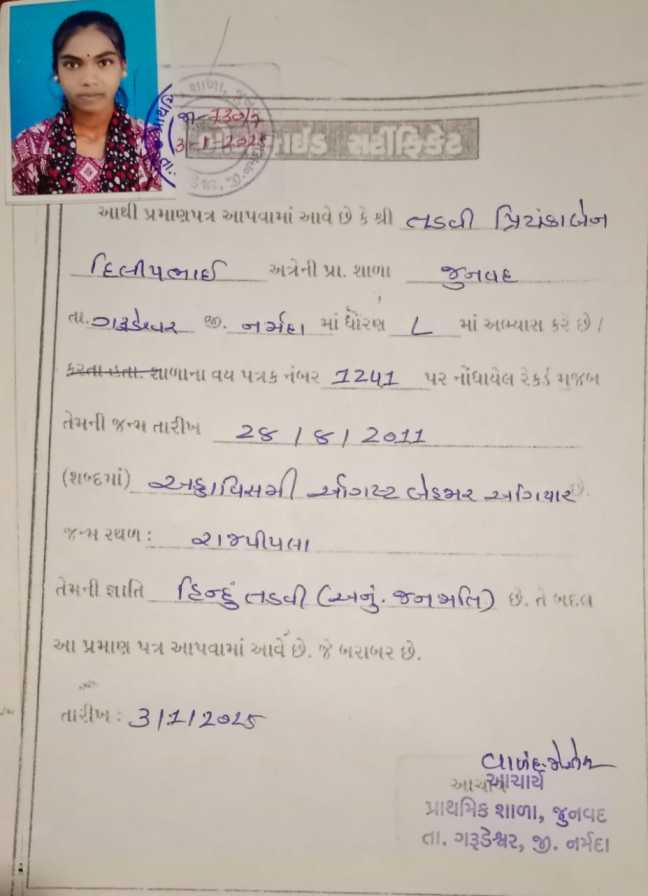 જા-730/2
3-1-2025
બોનાફાઇડ સર્ટીફિકેટ
આથી પ્રમાણપત્ર આપવામાં આવે છે કે શ્રી તડવી પ્રિયંકાબેન
દિલીપભાઈ અત્રેની પ્રા. શાળા જુનવદ
તા. ગરૂડેશ્વર જી. નર્મદા માં ધોરણ ૮ માં અભ્યાસ કરે છે /
કરતા હતા. શાળાના વય પત્રક નંબર 1241 પર નોંધાયેલ રેકર્ડ મુજબ
તેમની જન્મ તારીખ 28 / 8 / 2011
(શબ્દમાં) અઠ્ઠાવિસમી ઓગસ્ટ બેહજાર અગિયાર છે.
જન્મ સ્થળ : રાજપીપલા
તેમની જ્ઞાતિ હિન્દું તડવી (અનું. જનજાતિ) છે. તે બદલ
આ પ્રમાણ પત્ર આપવામાં આવે છે. જે બરાબર છે.
તારીખ : 3/1/2025
આચાર્ય
પ્રાથમિક શાળા, જુનવદ
તા. ગરૂડેશ્વર, જી. નર્મદા